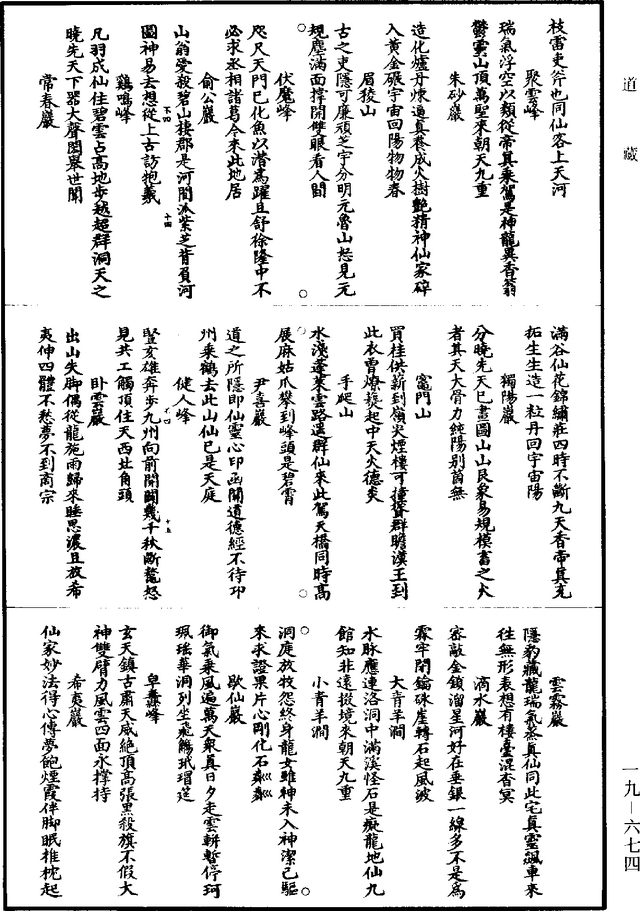 道藏
枝雷吏斧也同仙客上天河
聚雲峰
瑞氣浮空以類從帝真乘駕是神龍異香蓊
鬱雲山頂萬聖來朝天九重
朱砂巖
造化爐丹煉過真養成火樹艷精神仙家碎
入黃金碾宇宙回陽物物春
眉稜山
古之吏隱可廉頑芝宇分明元魯山恕見元
規塵滿面撐開雙眼看人間
伏魔峰
咫尺天門已化魚以潛爲躍且舒徐隆中不
必求丞相諸葛今來此地居
俞公巖
山翁愛殺碧山棲都是河間泒紫芝昔負河
圖神易去想從上古訪犧羲
十四
雞鳴峰
凡羽成仙住碧雲占高地步越超群洞天之
曉先天下器大聲閎舉世聞
常春巖
滿谷仙花錦繡莊四時不斷九天香帝真充
拓生生造一粒丹回宇宙陽
獨陽巖
分曉先天已畫圖山山艮象易規模畜之火
者真天大骨力純陽別箇無
竈門山
買桂供薪到嶺尖煙樓可撞聳群瞻漢王到
此衣曾燎摸起中天火德炎
手爬山
水淺蓬萊雲路遥群仙來此駕天橋同時高
展麻姑爪攀到峰頭是碧霄
尹喜巖
道之所隱即仙靈心印函關道德經不待卭
州乘鶴去此山仙已是天庭
健人峰
豎亥雄奔步九州向前開闢幾千秋斷鰲怒
見共工觸頂住天西北角頭
十五
卧雲巖
出山失脚偶從龍施雨歸來睡思濃且放希
夷伸四體不愁夢不到商宗
雲霧巖
隱豹藏龍瑞氣蒸真仙同此宅真靈飆車來
往無形表想有樓臺混杳冥
滴水巖
密敲金鎖溜星河好在垂銀一線多不是爲
霖牢閉鑰硃崖轉石起風波
大青羊澗
水脉應連洛洞中滿溪怪石是癡龍地仙九
館知非遠掇境來朝天九重
小青羊澗
洞庭放牧怨終身龍女雖神未入神潔己驅
來求證果片心剛化石粼粼
歇仙巖
御氣乘風遍萬天衆真日夕走雲軿暫停珂
珮瑶華洞列坐飛觴玳瑁筵
皁纛峰
玄天鎮古肅天威絶頂高張黑殺旗不假大
神雙臂力風雲四面永撑持
希夷巖
仙家妙法得心傳夢飽煙霞伴脚眠推枕起
一九—六七四